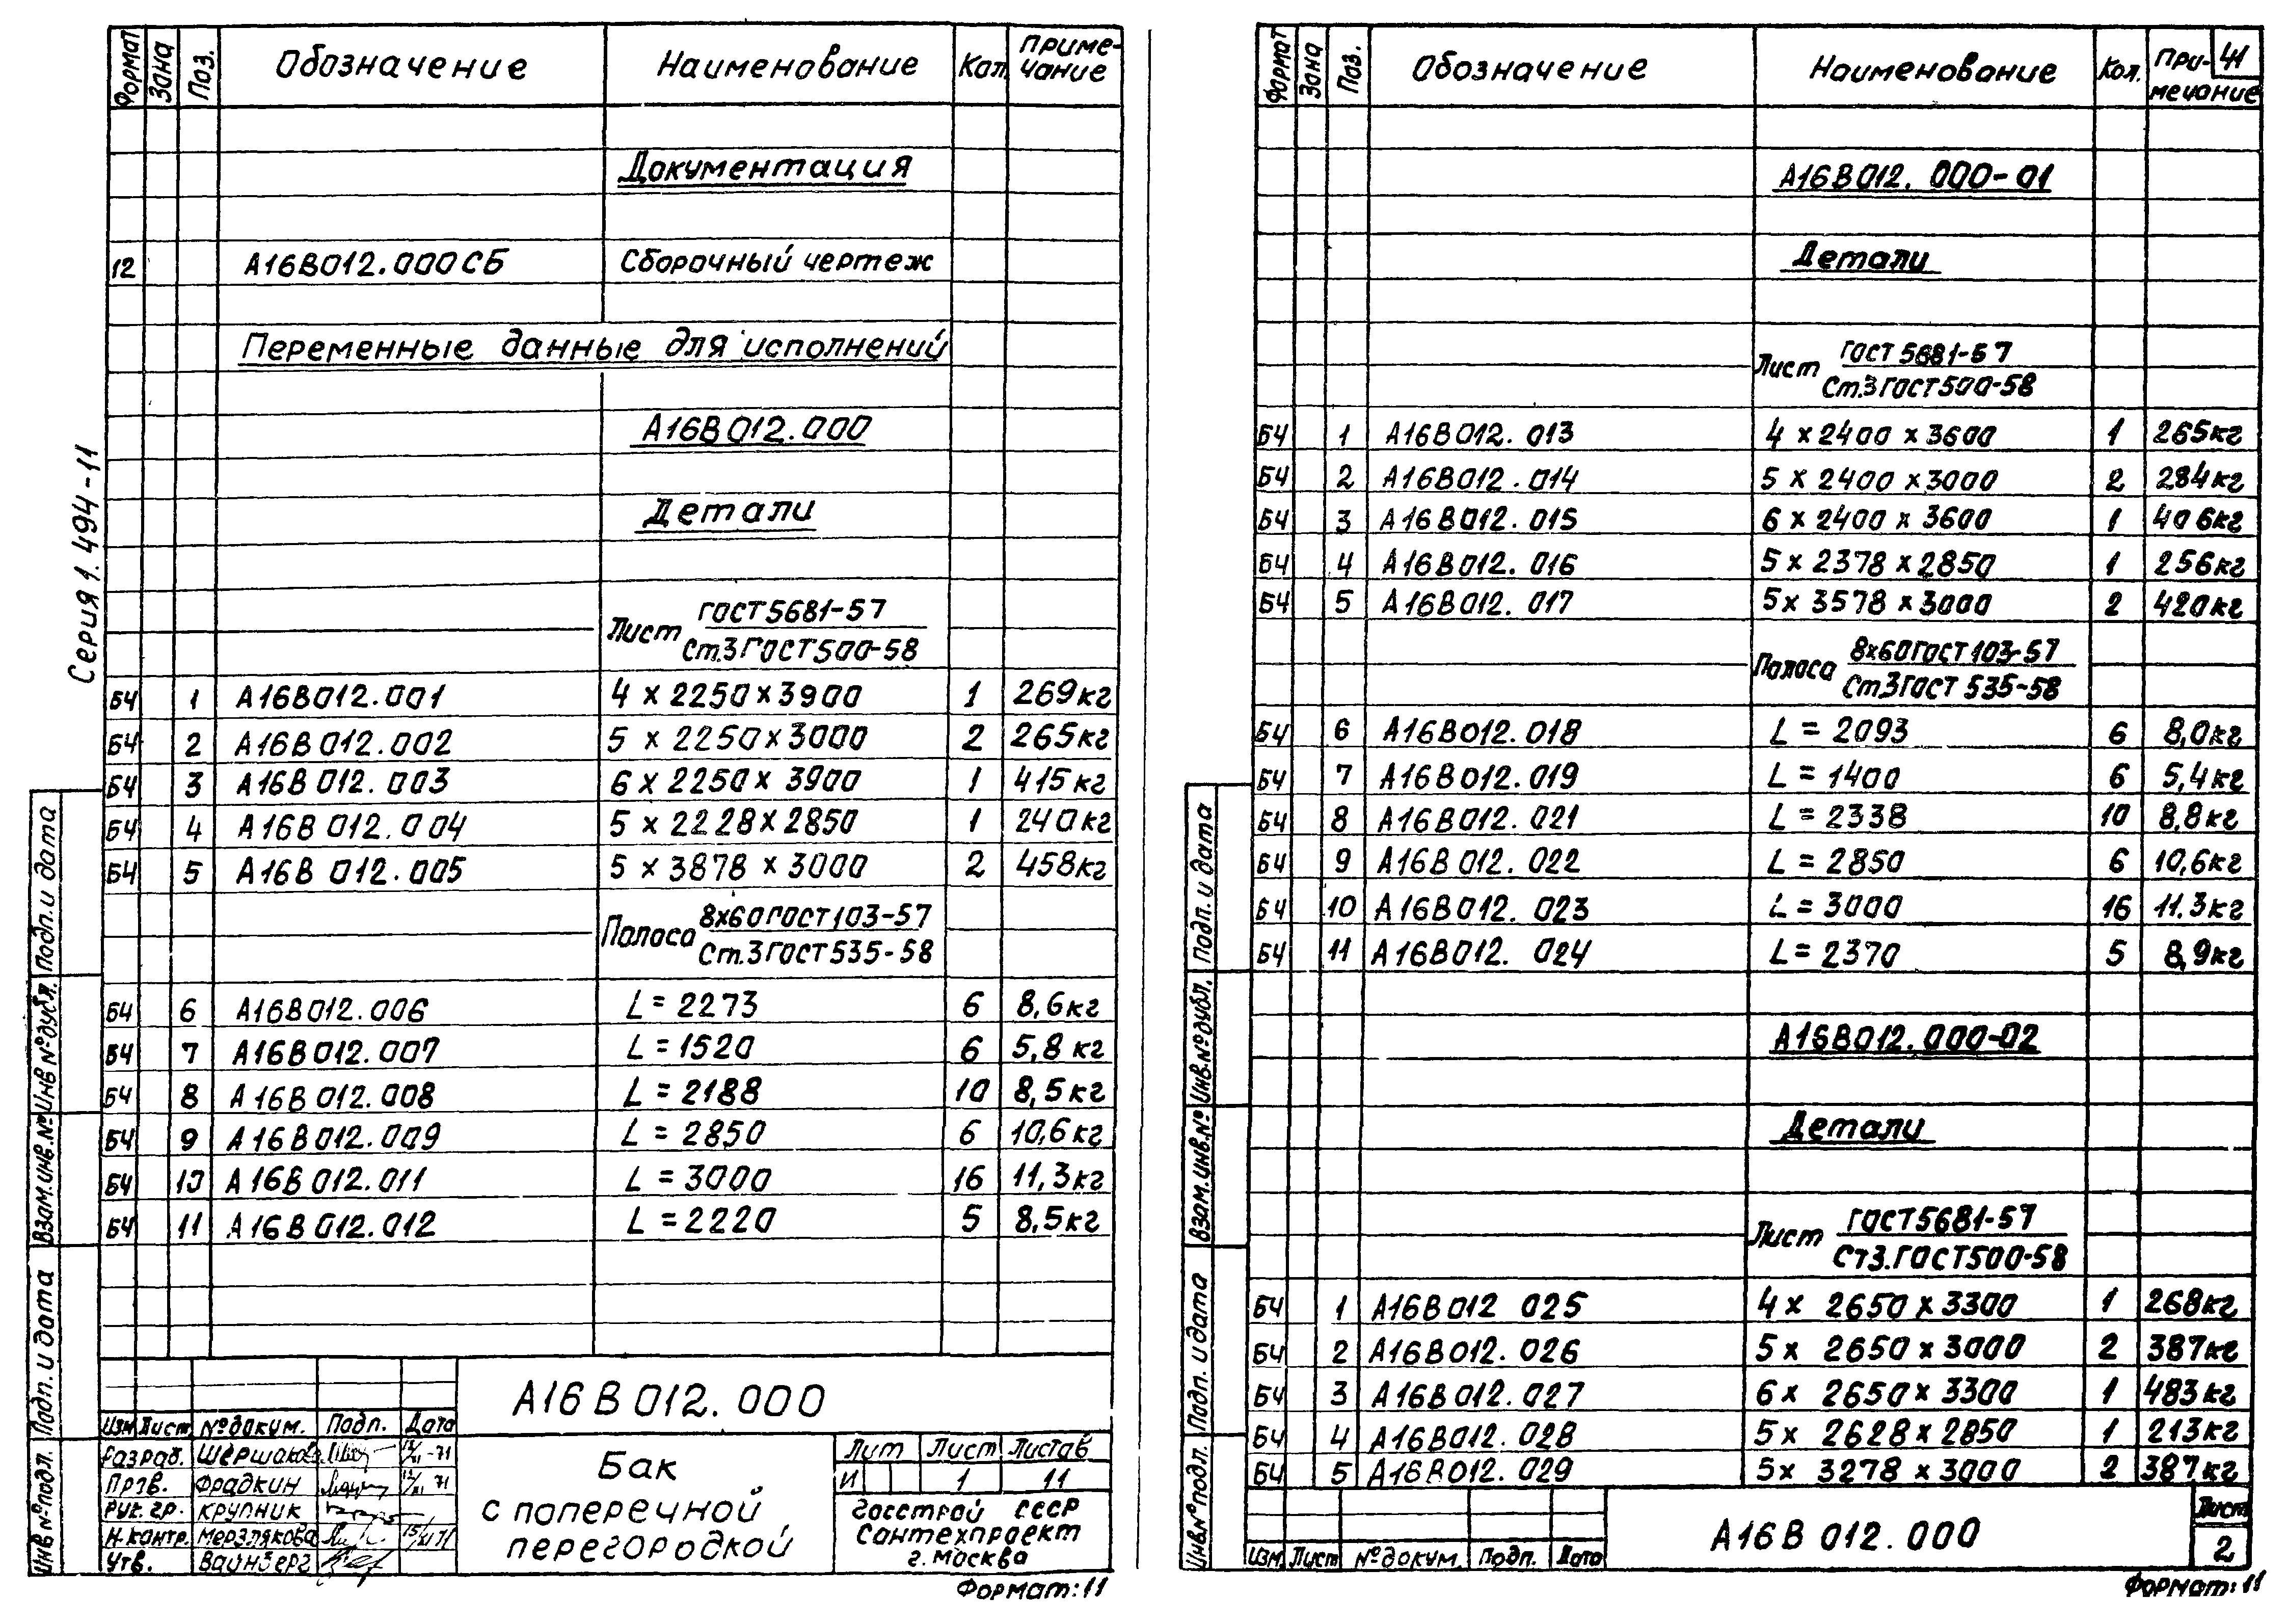 Формат Зона Поз. Обозначение Наименование Кол. Приме-
чание
Документация
12 А16В012.000СБ Сборочный чертеж
Переменные данные для исполнений
А16В012.000
Детали
Лист ГОСТ5681-57
Ст.3ГОСТ500-58
БЧ 1 А16В012.001 4 х 2250 х 3900 1 269кг
БЧ 2 А16В012.002 5 х 2250 х 3000 2 265кг
БЧ 3 А16В012.003 6 х 2250 х 3900 1 415кг
БЧ 4 А16В012.004 5 х 2228 х 2850 1 240кг
БЧ 5 А16В012.005 5 х 3878 х 3000 2 458кг
Полоса 8х60ГОСТ103-57
Ст.3ГОСТ535-58
БЧ 6 А16В012.006 L = 2273 6 8,6кг
БЧ 7 А16В012.007 L = 1520 6 5,8кг
БЧ 8 А16В012.008 L = 2188 10 8,5кг
БЧ 9 А16В012.009 L = 2850 6 10,6кг
БЧ 10 А16В012.011 L = 3000 16 11,3кг
БЧ 11 А16В012.012 L = 2220 5 8,5кг
Серия 1.494-11
Подп. и дата
Инв №дубл.
Взам.инв.№
Подп. и дата
Инв №подл.
А16В012.000
Изм Лист №докум. Подп. Дата
Разраб. Шершакова 12/XI-71
Пров. Фрадкин 12/XI 71
Рук. гр. Крупник
Н.контр. Мерзлякова 15/XI 71
Утв. Вайнберг
Бак
с поперечной
перегородкой
Лит Лист Листов
И 1 11
Госстрой СССР
Сантехпроект
г. Москва
Формат: 11
Формат Зона Поз. Обозначение Наименование Кол. При-
мечание
41
А16В012.000-01
Детали
Лист ГОСТ5681-57
Ст.3ГОСТ500-58
БЧ 1 А16В012.013 4 х 2400 х 3600 1 265кг
БЧ 2 А16В012.014 5 х 2400 х 3000 2 284кг
БЧ 3 А16В012.015 6 х 2400 х 3600 1 406кг
БЧ 4 А16В012.016 5 х 2378 х 2850 1 256кг
БЧ 5 А16В012.017 5 х 3578 х 3000 2 420кг
Полоса 8х60ГОСТ103-57
Ст3ГОСТ 535-58
БЧ 6 А16В012.018 L = 2093 6 8,0кг
БЧ 7 А16В012.019 L = 1400 6 5,4кг
БЧ 8 А16В012.021 L = 2338 10 8,8кг
БЧ 9 А16В012.022 L = 2850 6 10,6кг
БЧ 10 А16В012.023 L = 3000 16 11.3кг
БЧ 11 А16В012.024 L = 2370 5 8,9кг
А16В012.000-02
Детали
Лист ГОСТ5681-57
Ст3.ГОСТ500-58
БЧ 1 А16В012 025 4 х 2650 х 3300 1 268кг
БЧ 2 А16В012.026 5 х 2650 х 3000 2 387кг
БЧ 3 А16В012.027 6 х 2650 х 3300 1 483кг
БЧ 4 А16В012.028 5 х 2628 х 2850 1 213кг
БЧ 5 А16В012.029 5 х 3278 х 3000 2 387кг
Подп. и дата
Инв.№дубл.
Взам.инв.№
Подп. и дата
Инв.№подл.
Изм Лист №докум. Подп. Дата
А16В012.000
Лист
2
Формат: 11